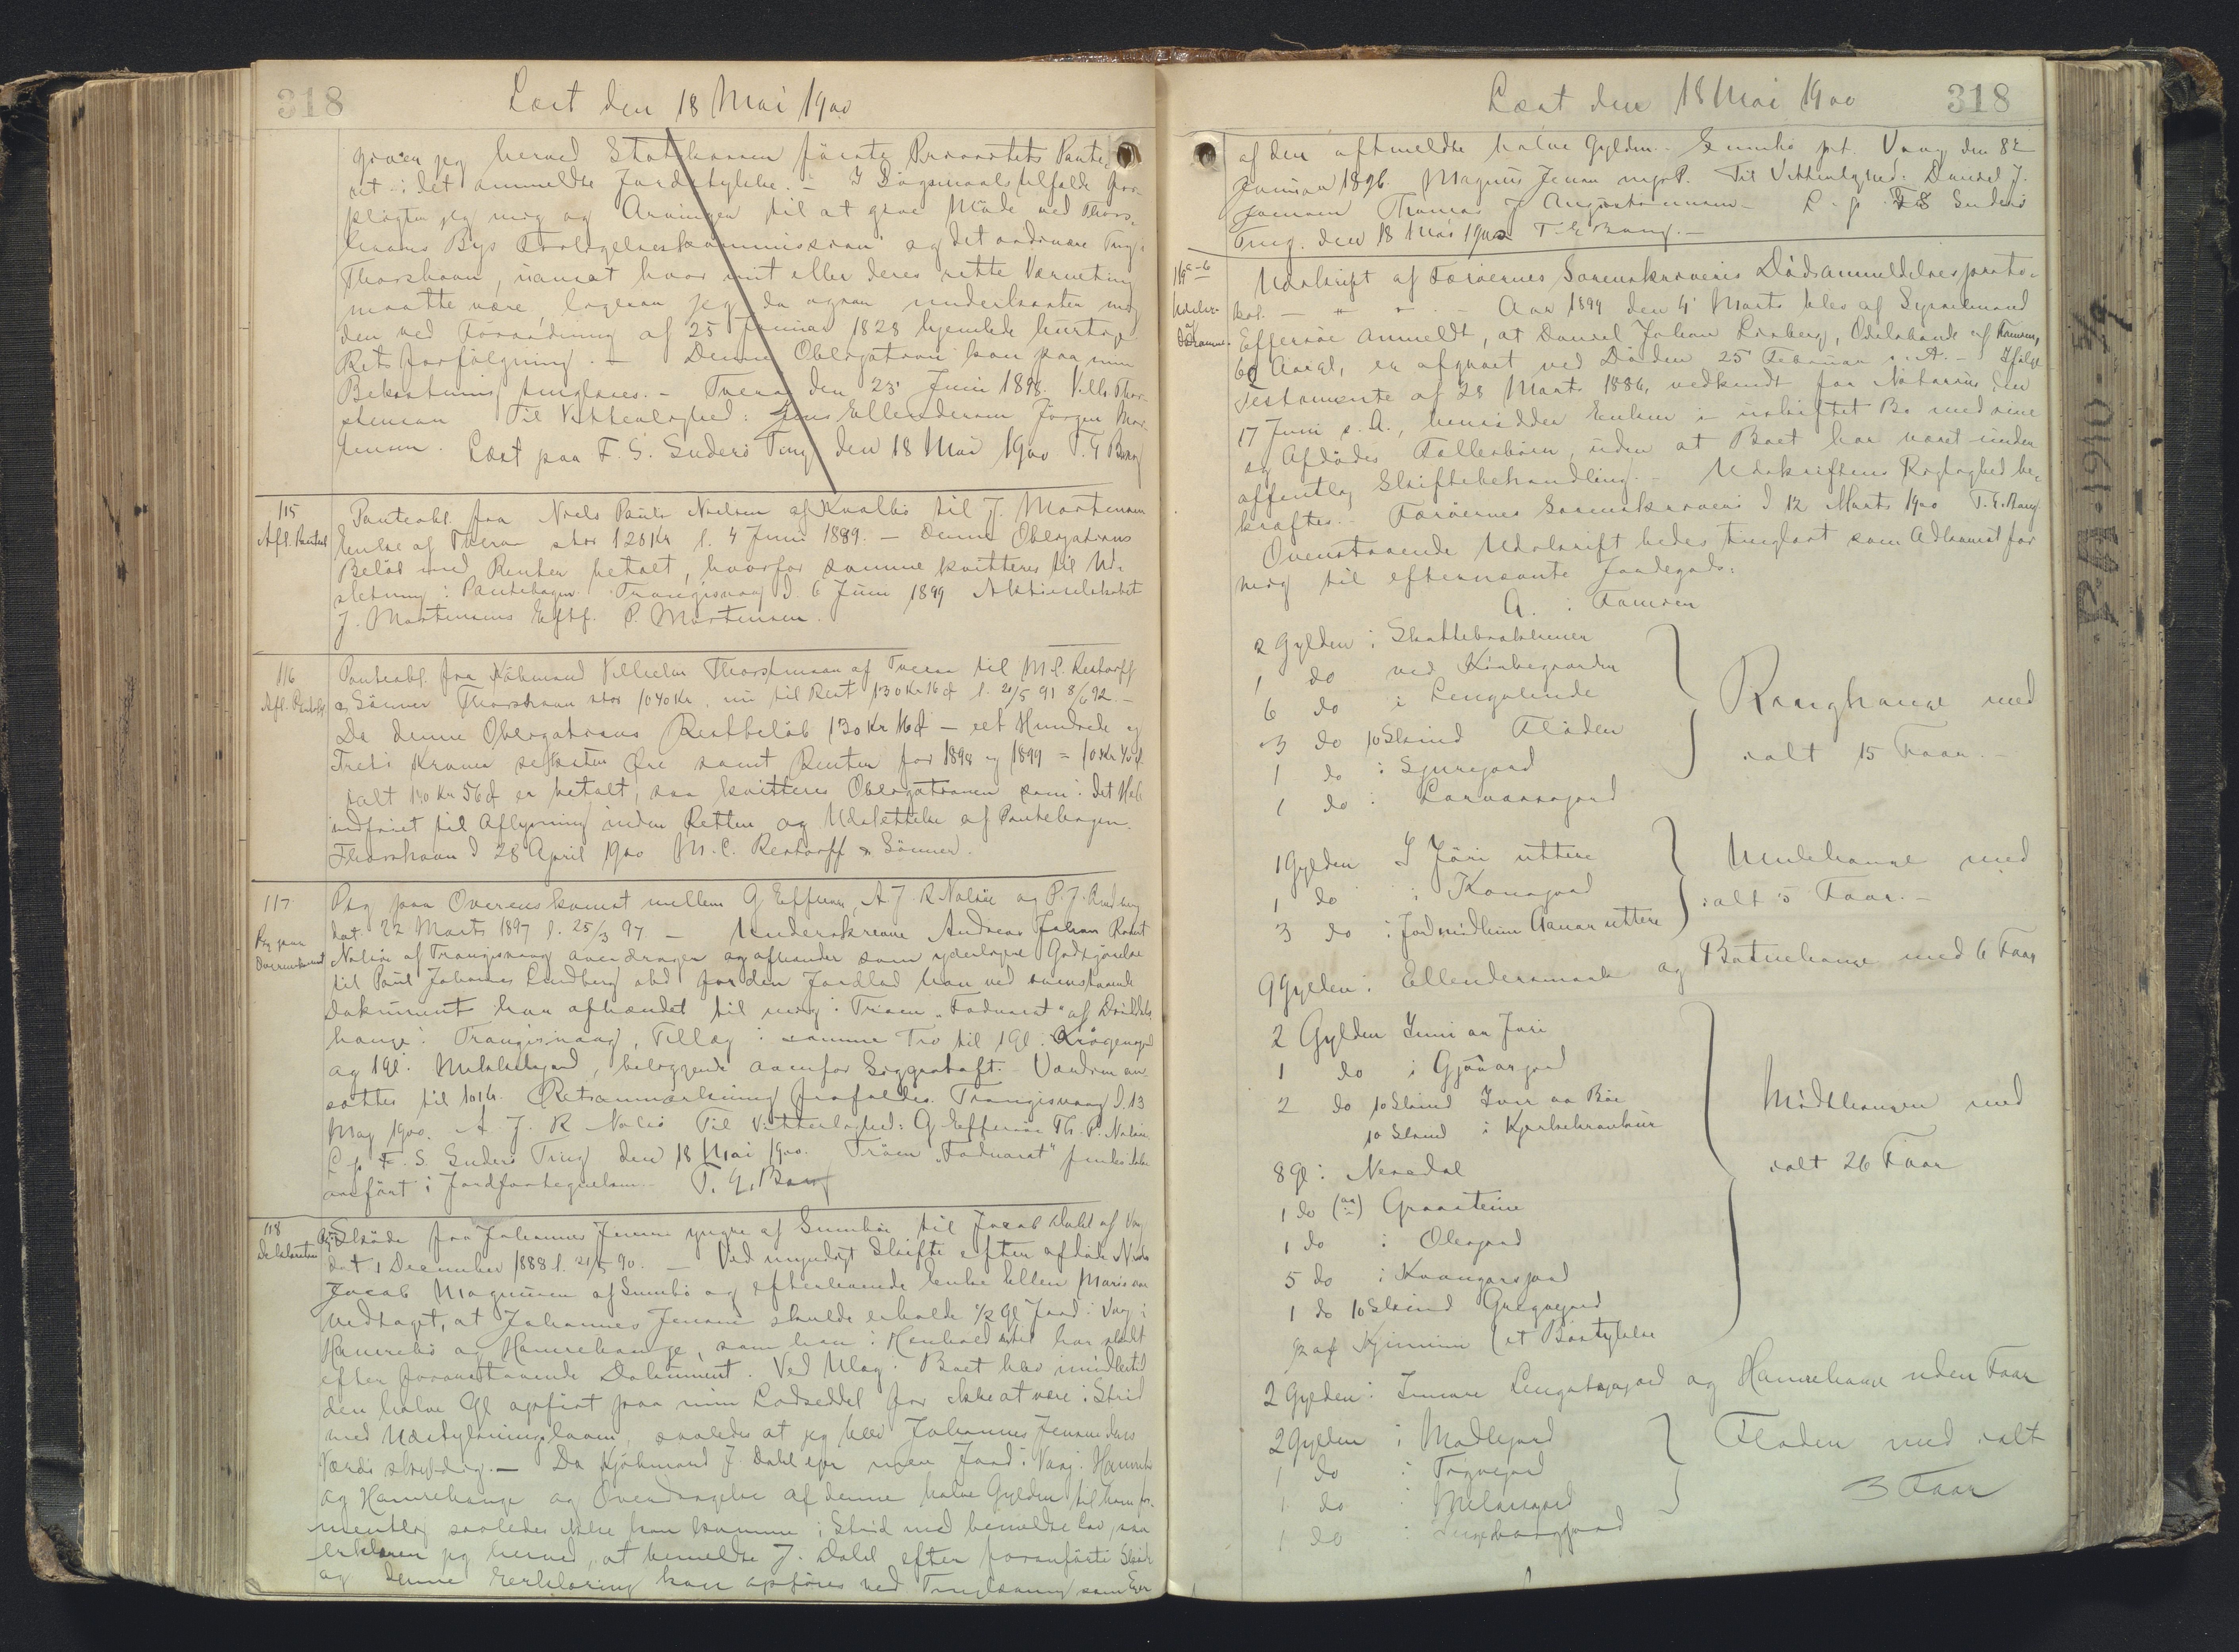 318
Læst den 18 Mai 1900
giver jeg herved Statskassen første Prioritets Pante-
ret i det anmeldte Jordstykke. - I Søgsmaalstilfælde for-
pligter jeg mig og Arvinger til at give Møde ved Thors-
havns Bys Forligelseskommission og det ordinære Ting i
Thorshavn, uanset hvor mit eller deres rette Værneting
maatte være, ligesom jeg da ogsaa underkaster mig
den ved Forordning af 25 Januar 1828 hjemlede hurtige
Rets forfølgning. - Denne Obligation kan paa min
Bekostning tinglæses. - Tveraa den 23 Juni 1898. Vilh Thor-
steinson Til Vitterlighed: Jens Ellendersen Jørgen Mor-
tensen. Læst paa F. S. Suderø Ting den 18 Mai 1900 T. E Bang
115
Afl. Panteobl
Panteobl. fra Niels Pauli Nielsen af Kvalbø til J. Mortensen
Enke af Tveraa stor 128 Kr l. 4 Juni 1889. - Denne Obligations
Beløb med Renter betalt, hvorfor samme kvitteres til Ud-
sletning i Pantebogen. Trangisvaag d. 6 Juni 1899 Aktieselskabet
J. Mortensens Eftf. P. Mortensen.
116
Afl. Panteobl
Panteobl. fra Købmand Vilhelm Thorsteinson af Tveraa til M. C. Restorff
& Sønner Thorshavn stor 1040 Kr, nu til Rest 130 Kr 16 Ø l. 21/5 91 8/6 92. -
Da denne Obligations Restbeløb 130 Kr 16 Ø - eet Hundrede og
Treti Kroner seksten Øre samt Renter for 1898 og 1899 = 10 Kr 40 Ø
ialt 140 Kr 56 Ø er betalt, saa kvitteres Obligationen som i det Hele
indfriet til Aflysning inden Retten og Udslettelse af Pantebogen.
Thorshavn d 28 April 1900 M. C. Restorff & Sønner.
117
Pag paa
Overenskomst
Pag paa Overenskomst mellem G Effersøe, A. J. R Nolsøe og P. J. Lindberg
dat. 22 Marts 1897 l. 25/3 97. - Underskrevne Andreas Johan Robert
Nolsøe af Trangisvaag overdrager og afhænder som yderligere Godtgørelse
til Poul Johannes Lindberg obd for den Jordlod han ved ovenstaaende
Dokument har afhændet til mig i Trøen "Fodnarat" af
hauge i Trangisvaag, Tillæg i samme Trø til 1 Gl. i Krøgenugd
og 1 Gl. i Midalsgard, beliggende Værdien an-
sættes til 10 Kr. Retsanmærkning frafaldes. Trangisvaag d. 13
May 1900. A J. R Nolsø Til Vitterlighed: G Effersøe Th. P. Nolsøe
L. p. F. S. Suderø Ting den 18 Mai 1900. Trøen "Fodnarat" findes ikke
anført i Jordfortegnelsen. T. E. Bang
118
Deklaration
Pag Skøde fra Johannes Jensen yngre af Sumbø til Jacob Dahl af Vaag
dat 1 December 1888 l. 21/5 90. - Ved myndigt Skifte efter afdøde Niels
Jacob Magnussen af Sumbø og efterlevende Enke Ellen Marie var
vedtaget, at Johannes Jensen skulde erholde 1/2 Gl Jord i Vaag i
Hamrebø og Hamrehauge, som han i Henhold hertil har skødt
efter foranstaaende Dokument. Ved Udlæg i Boet blev imidlertid
den halve Gl opført paa min Lodseddel for ikke at være i Strid
med Udstykningsloven, saaledes at jeg blev Johannes Jensen dens
Værdi skyldig. - Da Kjøbmand J. Dahl ejer men Jord i Vaag i Hamrebø
og Hamrehauge og Overdragelse af denne halve Gylden til ham for-
mentlig saaledes ikke kan komme i Strid med bemeldte Lov, saa
erklærer jeg herved, at bemeldte J. Dahl efter foranførte Skøde
og denne Erklæring kan opføres ved Tinglæsning som Ejer
Læst den 18 Mai 1900
318
af den oftmeldte halve Gylden. - Sumbø pt. Vaag den 8de
Januar 1896. Magnus Jensen mpP. Til Vitterlighed: Daniel J.
Joensen Thomas J Augustinussen - L. p. F S Suderø
Ting den 18 Mai 1900 T. E Bang. -
119 a-b
Udskr.
af
Udskrift af Færøernes Sorenskriveris Dødsanmeldelsesproto-
kol. - " - " - Aar 1899 den 4 Marts blev af Sysselmand
Effersøe anmeldt, at Daniel Johan Lindberg, Odelsbonde af Famien,
60 Aar gl, er afgaaet ved Døden 25 Februar s. A. - Ifølge
Testamente af 28 Marts 1886, vedkendt for Notarius den
17 Juni s. A., hensidder Enken i uskiftet Bo med sine
og Afdødes Fællesbørn, uden at Boet har været under
offentlig Skiftebehandling. - Udskriftens Rigtighed be-
kræftes. - Færøernes Sorenskriveri d 12 Marts 1900 T. E. Bang.
Ovenstaaende Udskrift bedes tinglæst som Adkomst for
mig til efternævnte Jordegods:
A. i Famien
2 Gylden i Skattebrekkunen
1 do ved Kirkegaarden
6 do i Lengalinde
3 do 10 Skind Fløden
1 do i Sjuregard
1 do i Larvassagard
Ranghauge med
ialt 15 Faar. -
1 Gylden I Jøri uttere
1 do i Konagard
3 do i Jordmidlum Aanar uttere
Undehauge med
ialt 5 Faar. -
9 Gylden i Ellendersmark og Botnehauge med 6 Faar
2 Gylden Inni aa Jøri
1 do i Gjáaargard
2 do 10 Skind Ivir aa Bøe
10 Skind i Kjerkekraakur
8 Gl i Nesedal
1 do (aa) Graasteine
1 do i Olesgard
5 do i Kvangarsgard
1 do 10 Skind Gulgagard
1/2 af Kjiminn (et Bøstykke
Midthaugen med
ialt 26 Faar
2 Gylden i Innare Lengabejagard og Hamrehauge uden Faar
2 Gylden i Mødlegard
1 do i Trigvagard
1 do i Melassgard
1 do i Ingeborggard
Floden med ialt
3 Faar